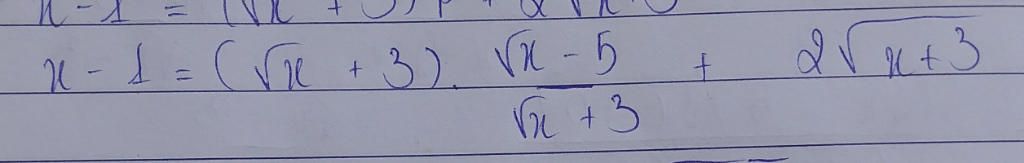 x - 1 = (√x + 3). (√x - 5)/(√x + 3) + 2√(x+3)